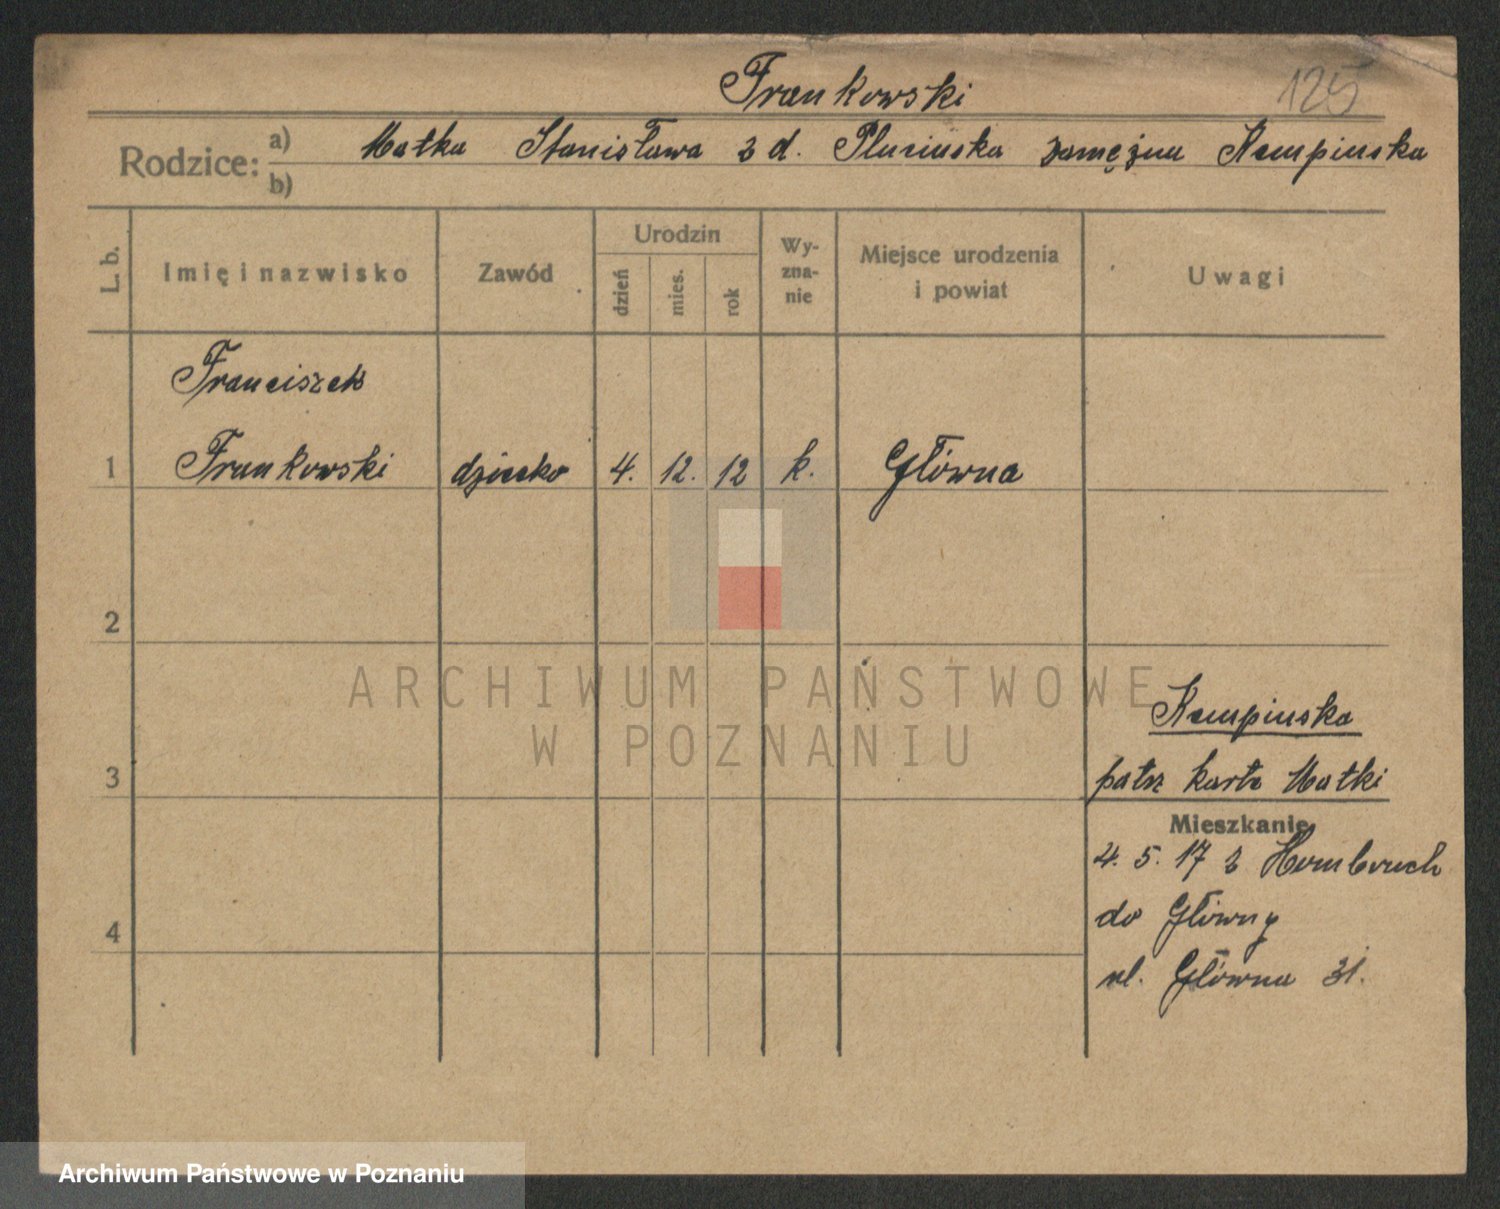 Frankowski
125
Rodzice: a) Matka Stanisława z d. Plucinska zamężna Kempinska
b)
L. b. Imię i nazwisko Zawód Urodzin dzień mies. rok Wy-zna-nie Miejsce urodzenia i powiat Uwagi
Franciszek
1 Frankowski dziecko 4. 12. 12 k. Główna
2
ARCHIWUM PAŃSTWOWE
W POZNANIU
Kempinska
3 patrz karta Matki
Mieszkanie
4. 5. 17 z Hombruch
do Główny
4
ul. Główna 31.
Archiwum Państwowe w Poznaniu